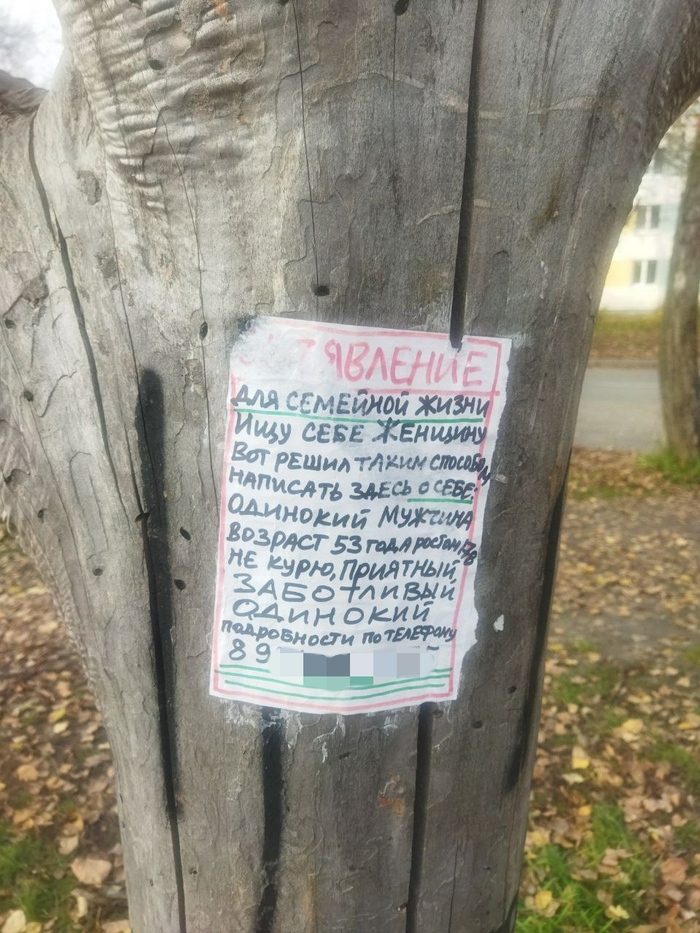 ЯВЛЕНИЕ
ДЛЯ СЕМЕЙНОЙ ЖИЗНИ
ИЩУ СЕБЕ ЖЕНЩИНУ
ВОТ РЕШИЛ ТАКИМ СПОСОБОМ
НАПИСАТЬ ЗДЕСЬ О СЕБЕ:
ОДИНОКИЙ МУЖЧИНА
ВОЗРАСТ 53 ГОДА РОСТОМ 178
НЕ КУРЮ, ПРИЯТНЫЙ,
ЗАБОТЛИВЫЙ
ОДИНОКИЙ
ПОДРОБНОСТИ ПО ТЕЛЕФОНУ
89